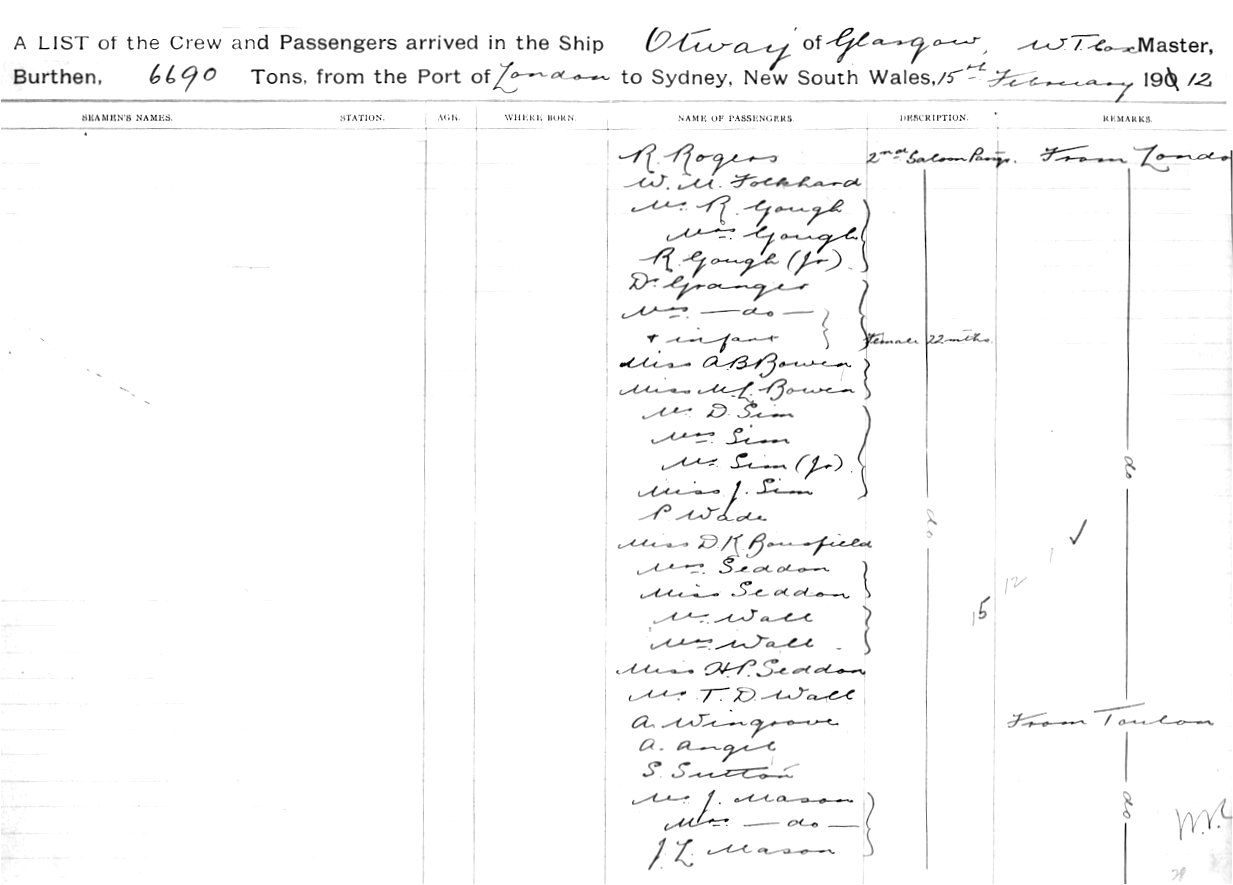 A LIST of the Crew and Passengers arrived in the Ship Otway of Glasgow, W T Cox Master,
Burthen, 6690 Tons, from the Port of London to Sydney, New South Wales, 15th February 190 12
SEAMEN'S NAMES. STATION. AGE. WHERE BORN. NAME OF PASSENGERS. DESCRIPTION. REMARKS.
R Rogers 2nd Saloon Pangs. From Londo
W. M. Folkhard
Mr R. Gough
Mrs. Gough
R. Gough (Jr)
Dr Granger
Mrs — do —
+ infant female 22 mths
Miss A B Bowen
Miss M L Bowen
Mr D. Sim
Mrs Sim
Mr Sim (Jr) do
Miss J. Sim
P Wade do
Miss D. K Bousfield
Mrs. Seddon
Miss Seddon 12
Mr Wall 15
Mrs Wall
Miss H. P. Seddon
Mr T. D Wall
A. Wingrove From Toulon
A. Angel
S. Sutton
Mr J. Mason do
Mrs — do —
J L Mason